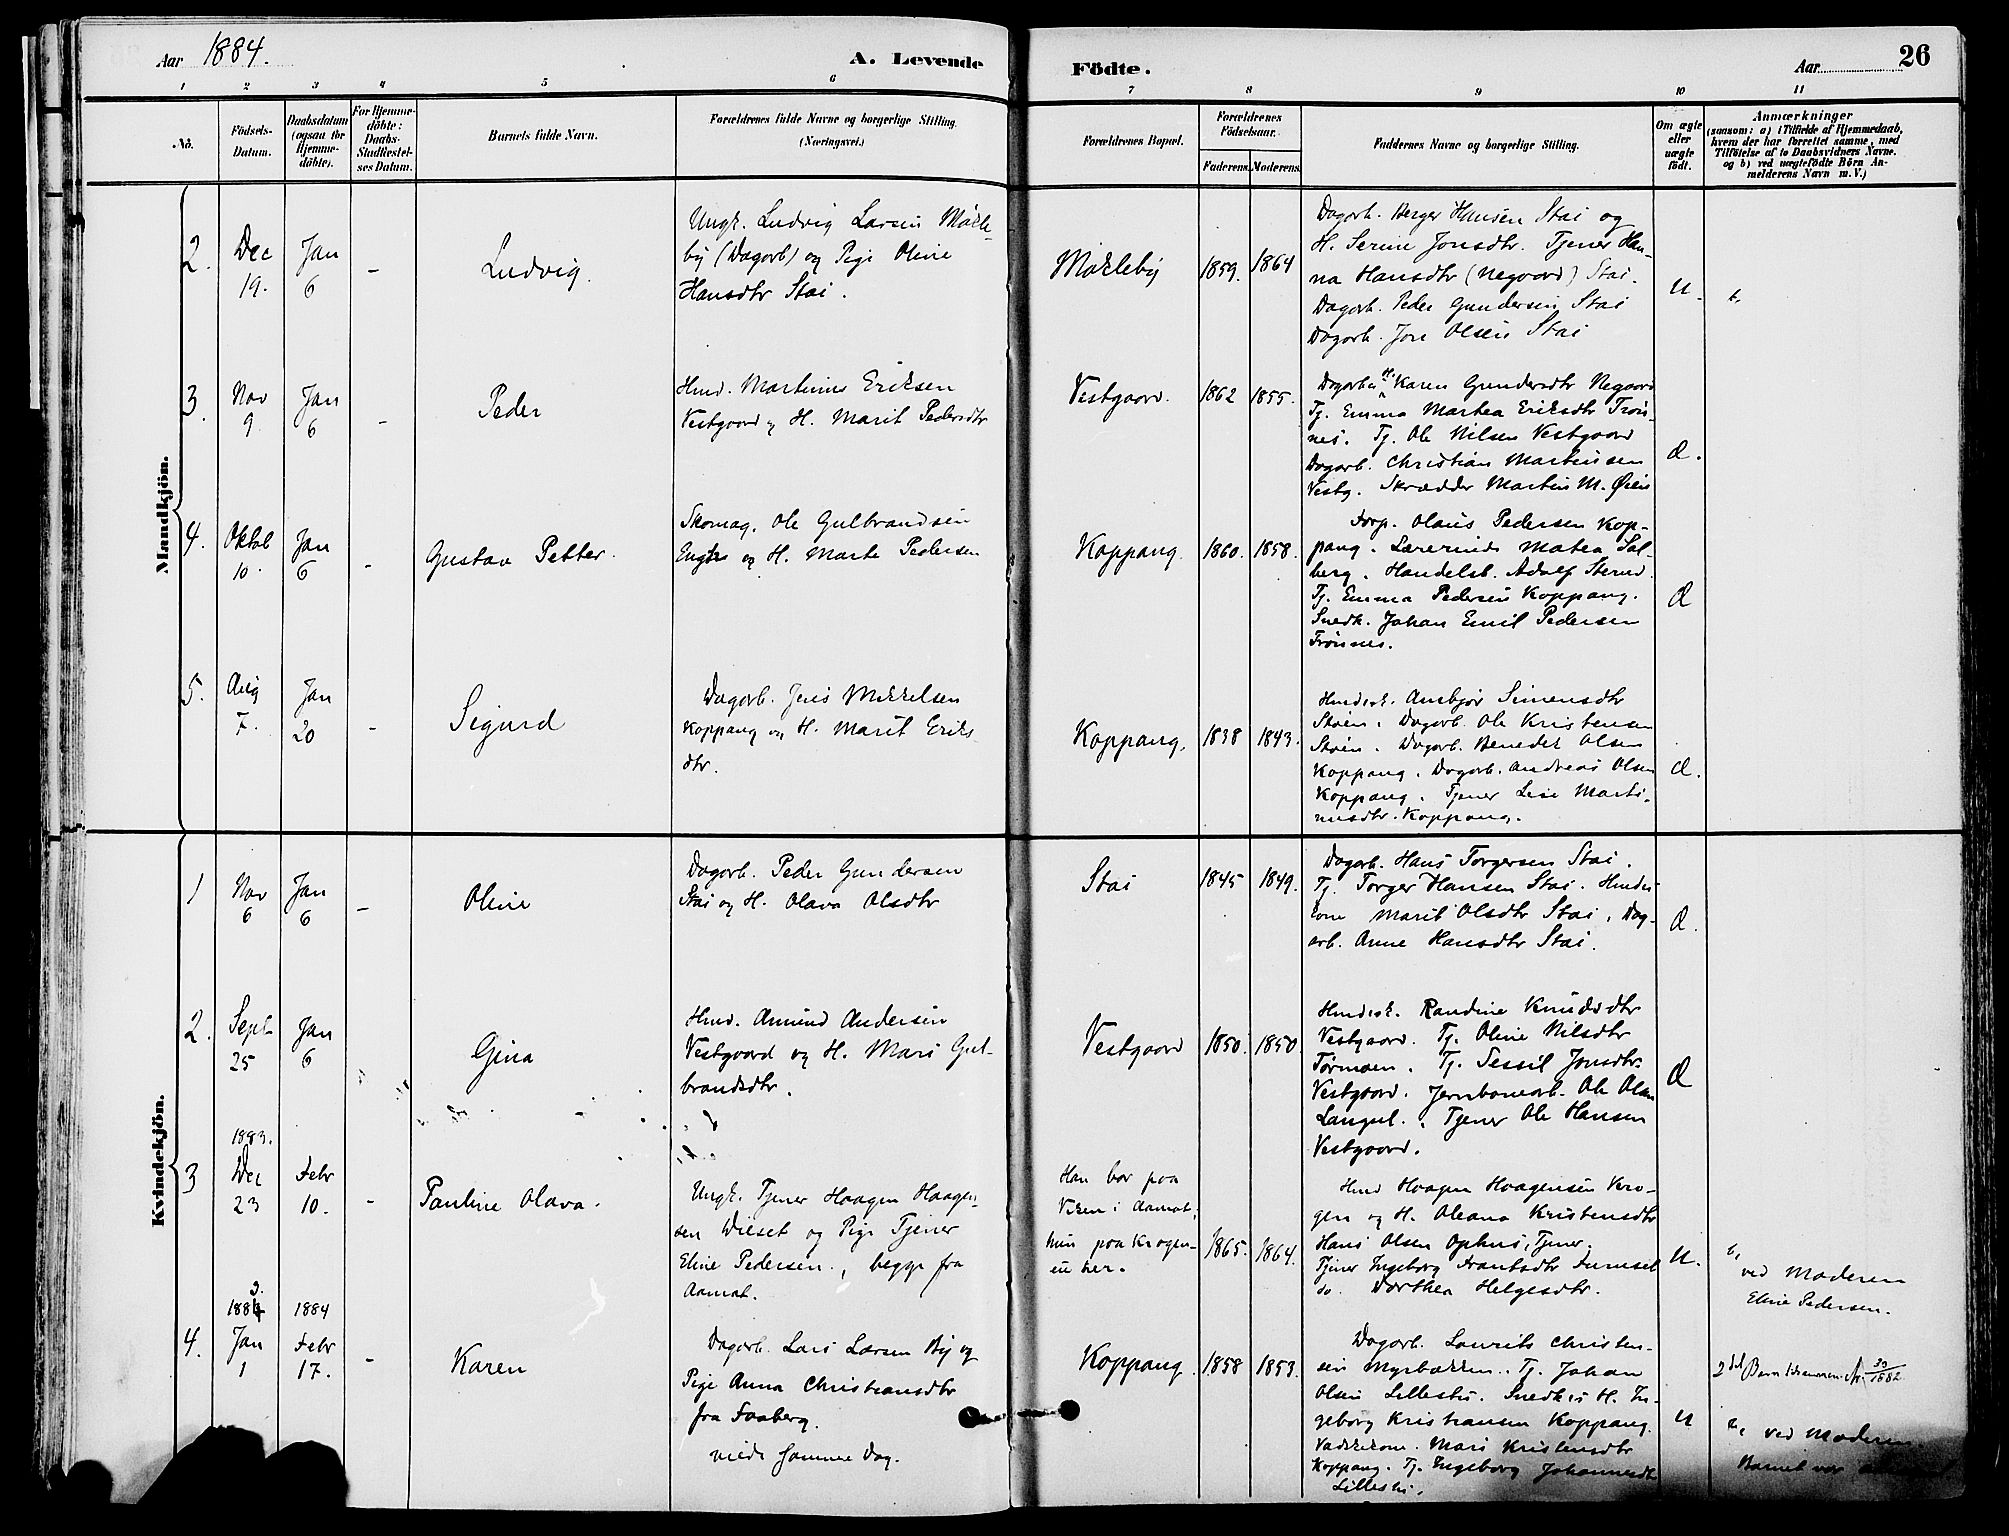 Aar 1884.
A. Levende
Födte.
Aar
26
1 2 3 4 5 6 7 8 9 10 11
No.
Födsels-
Datum.
Daabsdatum
(ogsaa for
Hjemme-
döbte).
For Hjemme-
döbte:
Daabs-
Stadfæstel-
ses Datum.
Barnets fulde Navn.
Forældrenes fulde Navne og borgerlige Stilling.
(Næringsvei.)
Forældrenes Bopæl.
Forældrenes
Födselsaar.
Faderens. Moderens.
Faddernes Navne og borgerlige Stilling.
Om ægte
eller
uægte
födt.
Anmærkninger
(saasom: a) i Tilfælde af Hjemmedaab,
hvem der har forrettet samme, med
Tilföielse af to Daabsvidners Navne.
og b) ved uægtefödte Börn An-
melderens Navn m.V.)
Mandkjön.
2.
Dec
19.
Jan
6
-
Ludvig.
Ungk. Ludvig Larsen Mökle-
by (Dagarb) og Pige Oline
Hansdtr Stai.
Mökleby
1859.
1864
Dagarb. Berger Hansen Stai og
H. Serine Jonsdtr. Tjener Han-
na Hansdtr (Negaard) Stai.
Dagarb. Peder Gundersen Stai
Dagarb. Jon Olsen Stai
u.
b,
3.
Nov
9
Jan
6
-
Peder
Hmd. Martinus Eriksen
Vestgaard og H. Marit Pedersdtr
Vestgaard.
1862
1855.
Dagarb H. Karen Gundersdtr Negaard
Tj. Emma Martea Eriksdtr Trön-
nes. Tj. Ole Nilsen Vestgaard
Dagarb. Christian Martinsen
Vestg. Skrædder Martin M. Øien
Æ.
4.
Oktob
10.
Jan
6
-
Gustav Petter.
Skomag. Ole Gulbrandsen
og H. Marte Pedersen
Koppang.
1860.
1858.
Forp. Olaus Pedersen Kop-
pang. Lærerinde Matea Sol-
berg. Handelsb. Adolf
Tj. Emma Pedersen Koppang.
Snedk. Johan Emil Pedersen
Trönnes.
Æ
5.
Aug
7.
Jan
20
-
Sigurd
Dagarb. Jens Mikkelsen
Koppang og H. Marit Eriks-
dtr.
Koppang.
1838
1843.
Hmdsk. Ansbjör Simensdtr
Stöen. Dagarb. Ole Kristensen
Stöen. Dagarb. Benedik Olsen
Koppang. Dagarb. Andreas Olsen
Koppang. Tjener Lise Marti-
nusdtr. Koppang.
Æ.
Kvindekjön.
1
Nov
6
Jan
6
-
Oline
Dagarb. Peder Gundersen
Stai og H. Olava Olsdtr
Stai
1845
1849.
Dagarb. Hans Torgersen Stai.
Tj. Torger Hansen Stai. Hmds-
kone Marit Olsdtr Stai. Dag-
arb. Anne Hansdtr Stai.
Æ.
2.
Sept
25
Jan
6
Gina
Hmd. Amund Andersen
Vestgaard og H. Mari Gul-
brandsdtr.
Vestgaard
1850.
1850.
Hmdsk. Randine Knudsdtr
Vestgaard. Tj. Oline Nilsdtr
Tørmoen. Tj. Sessil Jonsdtr.
Vestgaard. Jernbanearb. Ole Olsen
Tjener Ole Hansen
Vestgaard.
Æ
1883.
3
Dec
23
Febr
10.
-
Pauline Olava.
Ungk. Tjener Haagen Haagen-
sen og Pige Tjener
Eline Pedersen., begge fra
Aamot.
Han bor paa
i Aamot,
hun paa Krogen-
en her.
1865.
1864.
Hmd Haagen Haagensen Kro-
gen og H. Oleana Kristensdtr
Hans Olsen Ophus, Tjener.
Tjener Ingeborg Frantsdtr Furuset
do. Dorthea Helgesdtr.
u.
b,
ved Moderen
Eline Pedersen.
1883 1884
4.
Jan
1
Febr
17.
-
Karen
Dagarb. Lars Larsen By og
Pige Anna Christiansdtr
fra Faaberg.
viede samme Dag.
Koppang
1858
1853.
Dagarb. Laurits Christen-
sen Myrbakken. Tj. Johan
Olsen Lillestu. Snedkers H. In-
geborg Kristiansen Koppang.
Vaskekone. Mari Kristensdtr
Koppang. Tj. Ingeborg Johannesdtr
Lillestu.
u
2det Barn
b, ved Moderen
Barnet var